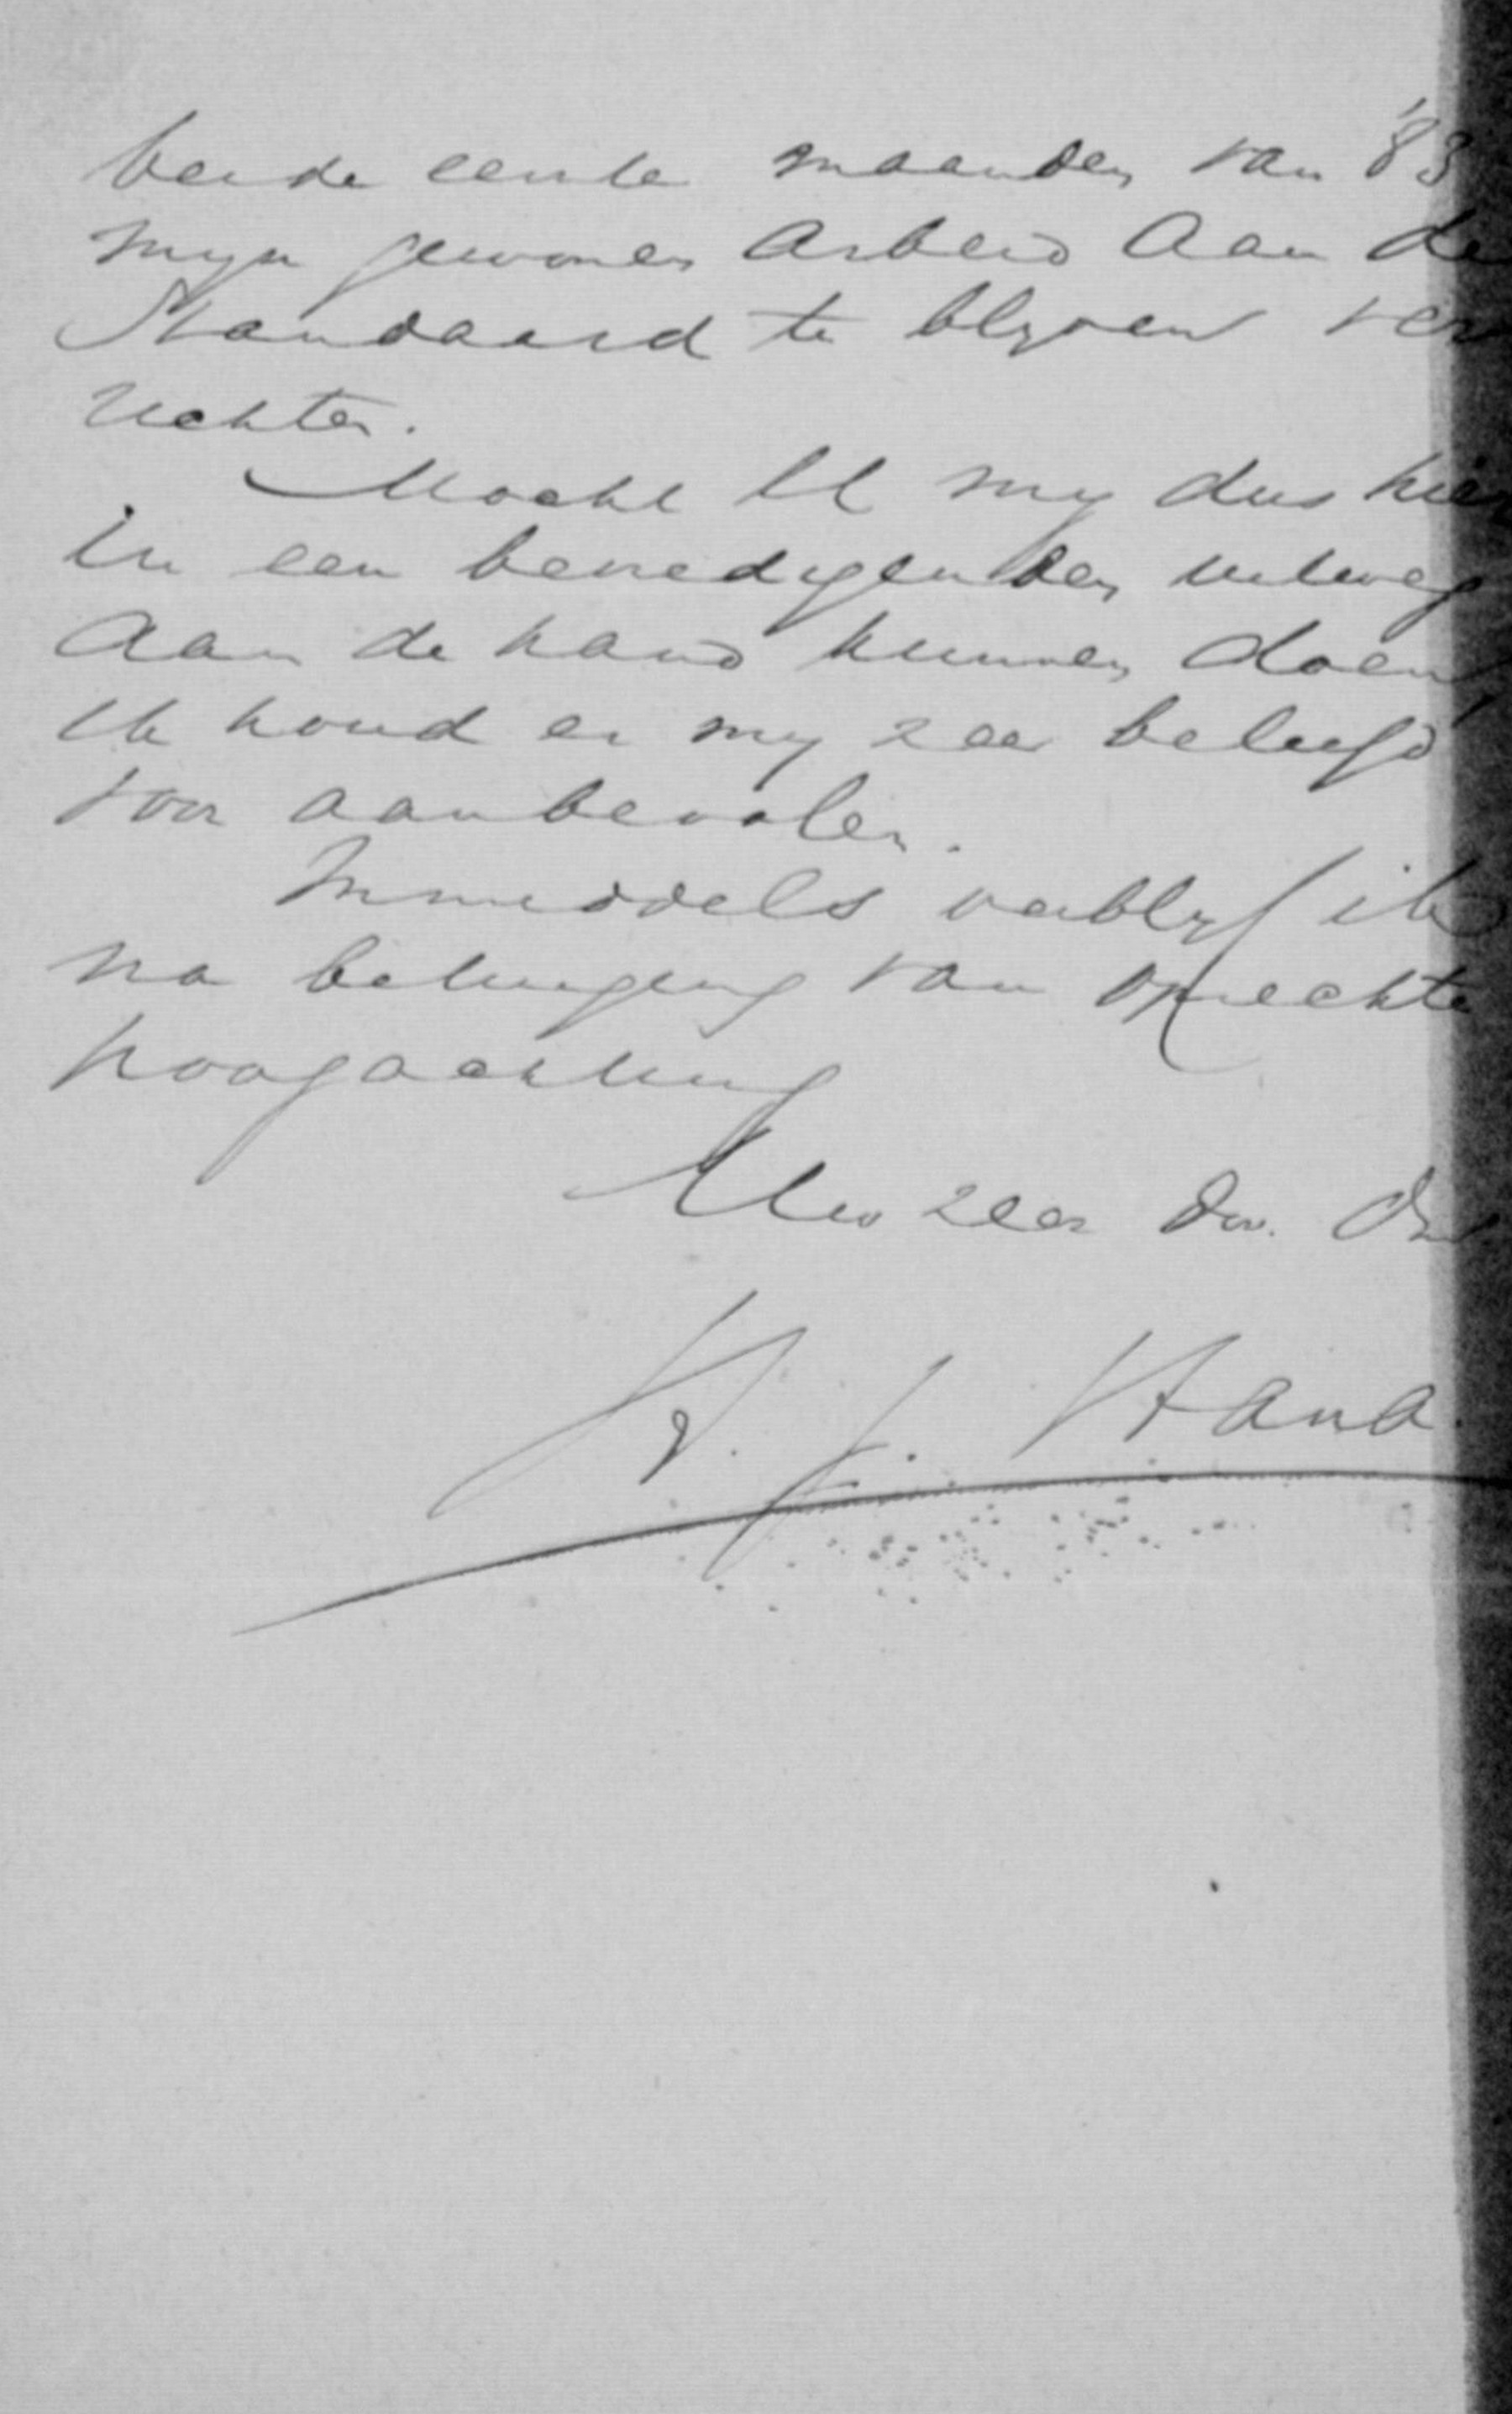 beide eerste maanden van '83
mijn gewonen arbeid aan de
Standaard te blijven ver
richten.
Mocht U mij dus hier
in een bevredigenden uitweg
aan de hand kunnen doen,
ik houd er mij zeer beleefd
voor aanbevolen.
Inmiddels verblijf ik
na betuiging van oprechte
hoogachting
Uw zeer dw. Dr